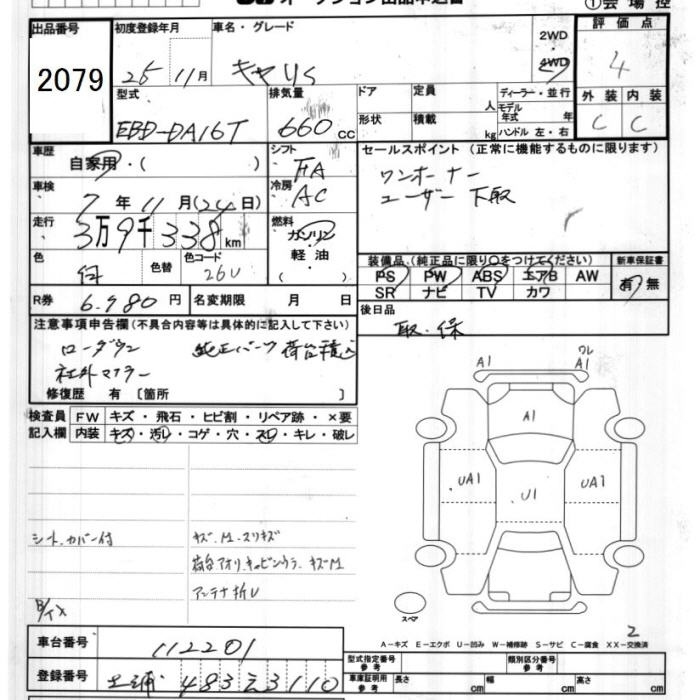 ①会場控
出品番号 初度登録年月 車名・グレード 2WD 評価点
2079 25 11月 キャリイ 4WD 4
型式 排気量 ドア 定員 ディーラー・並行 外装 内装
EBD-DA16T 660cc 形状 積載 人 kg モデル年式 年 ハンドル 左・右 C C
車歴 シフト セールスポイント (正常に機能するものに限ります)
自家用・( ) FA ワンオーナー
車検 7年11月(24日) 冷房 AC ユーザー下取
走行 3万9千338km 燃料 ガソリン
軽油
色 色替 色コード 26U
装備品 (純正品に限り○をつけてください) 新車保証書
PS PW ABS エアB AW 有・無
SR ナビ TV カワ
R券 6,980円 名変期限 月 日 後日品
取・保
注意事項申告欄 (不具合内容等は具体的に記入して下さい)
ローダウン 純正パーツ 荷台積込
社外マフラー
修復歴 有 [箇所 ]
検査員 FW キズ・飛石・ヒビ割・リペア跡・×要
記入欄 内装 キズ・汚レ・コゲ・穴・スレ・キレ・破レ
A1 A1 ワレ
A1
UA1 U1 UA1
シートカバー付 キズ.M.スリキズ
荷台アオリ.キャビンウラ.キズM
アンテナ折レ
スペア
2
A-キズ E-エクボ U-凹み W-補修跡 S-サビ C-腐食 XX-交換済
車台番号 112201
型式指定番号 参考 類別区分番号 参考
登録番号 土浦 483 え 3110
車庫証明用 参考 長さ cm 幅 cm 高さ cm